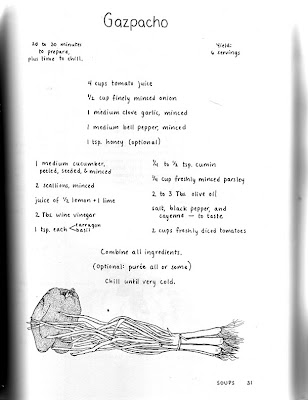 Gazpacho
20 to 30 minutes
to prepare,
plus time to chill.
Yield:
6 servings
4 cups tomato juice
½ cup finely minced onion
1 medium clove garlic, minced
1 medium bell pepper, minced
1 tsp. honey (optional)
1 medium cucumber,
peeled, seeded, & minced
2 scallions, minced
juice of ½ lemon + 1 lime
2 Tbs. wine vinegar
1 tsp. each tarragon
basil
¼ to ½ tsp. cumin
¼ cup freshly minced parsley
2 to 3 Tbs. olive oil
salt, black pepper, and
cayenne – to taste
2 cups freshly diced tomatoes
Combine all ingredients.
(Optional: purée all or some)
Chill until very cold.
SOUPS 31